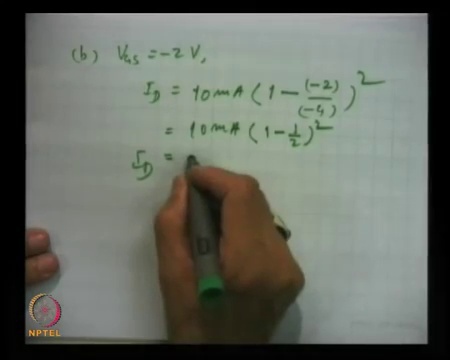 (b) V_GS = -2 V,
I_D = 10mA (1 - (-2)/(-4))²
= 10mA (1 - 1/2)²
I_D =
NPTEL